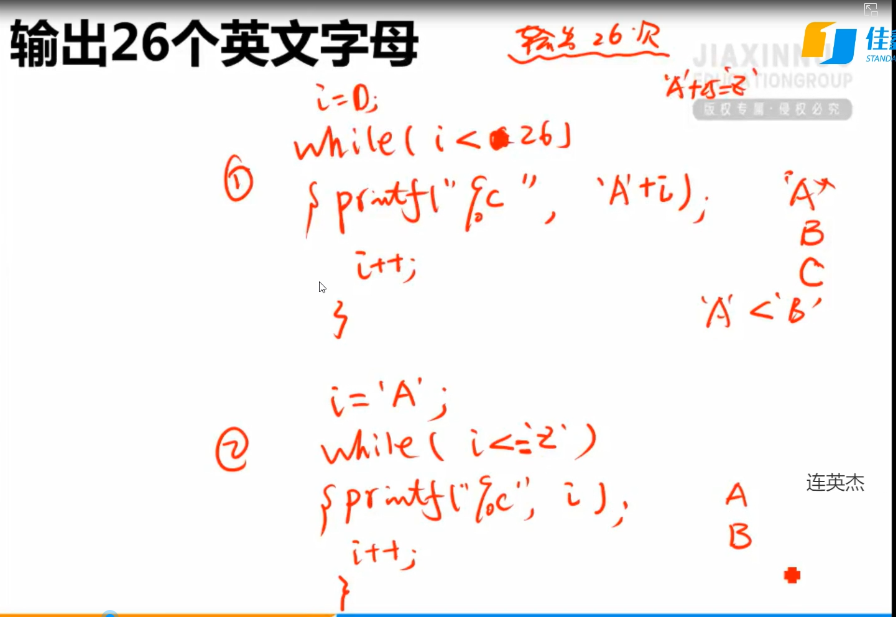 输出26个英文字母
输出26次
佳
STAND
JIAXINN
EDUCATIONGROUP
版权专属·侵权必究
'A'+25='Z'
i=0;
①
while( i < 26)
{ printf("%c", 'A'+i);
i++;
}
'A'
B
C
'A' < 'B'
②
i='A';
while( i<='Z')
{ printf("%c", i);
i++;
}
A
B
连英杰